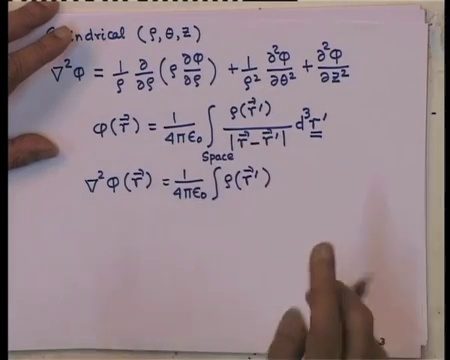 indrical (ρ, θ, z)
∇²φ = 1/ρ ∂/∂ρ (ρ ∂φ/∂ρ) + 1/ρ² ∂²φ/∂θ² + ∂²φ/∂z²
φ(r⃗) = 1/4πϵ₀ ∫ ρ(r⃗′)/|r⃗ − r⃗′| d³r′
Space
∇²φ(r⃗) = 1/4πϵ₀ ∫ ρ(r⃗′)